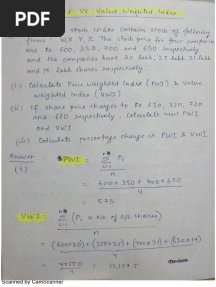 PDF
Vs Value Weighted Index
stock index contains stock of following
firms - W, X, Y, Z. The stock price for four companies
are Rs 600, 350, 700 and 650 respectively
and the companies have 20 lakh, 25 lakh, 21 lakh
and 14 lakh shares respectively.
(i) Calculate Price Weighted Index (PWI) & Value
weighted index (VWI)
(ii) If share price changes to Rs 630, 320, 720
and 680 respectively. Calculate new PWI
and VWI
(iii) Calculate percentage change in PWI & VWI
Answer
(i) PWI: = Σ Pi
i=1
n
= 600+350+700+650
4
= 575
VWI: = Σ (Pi × No. of O/s shares)
i=1
n
= (600×20)+(350×25)+(700×21)+(650×14)
4
= 44550
4
= 11,137.5
Scanned by CamScanner